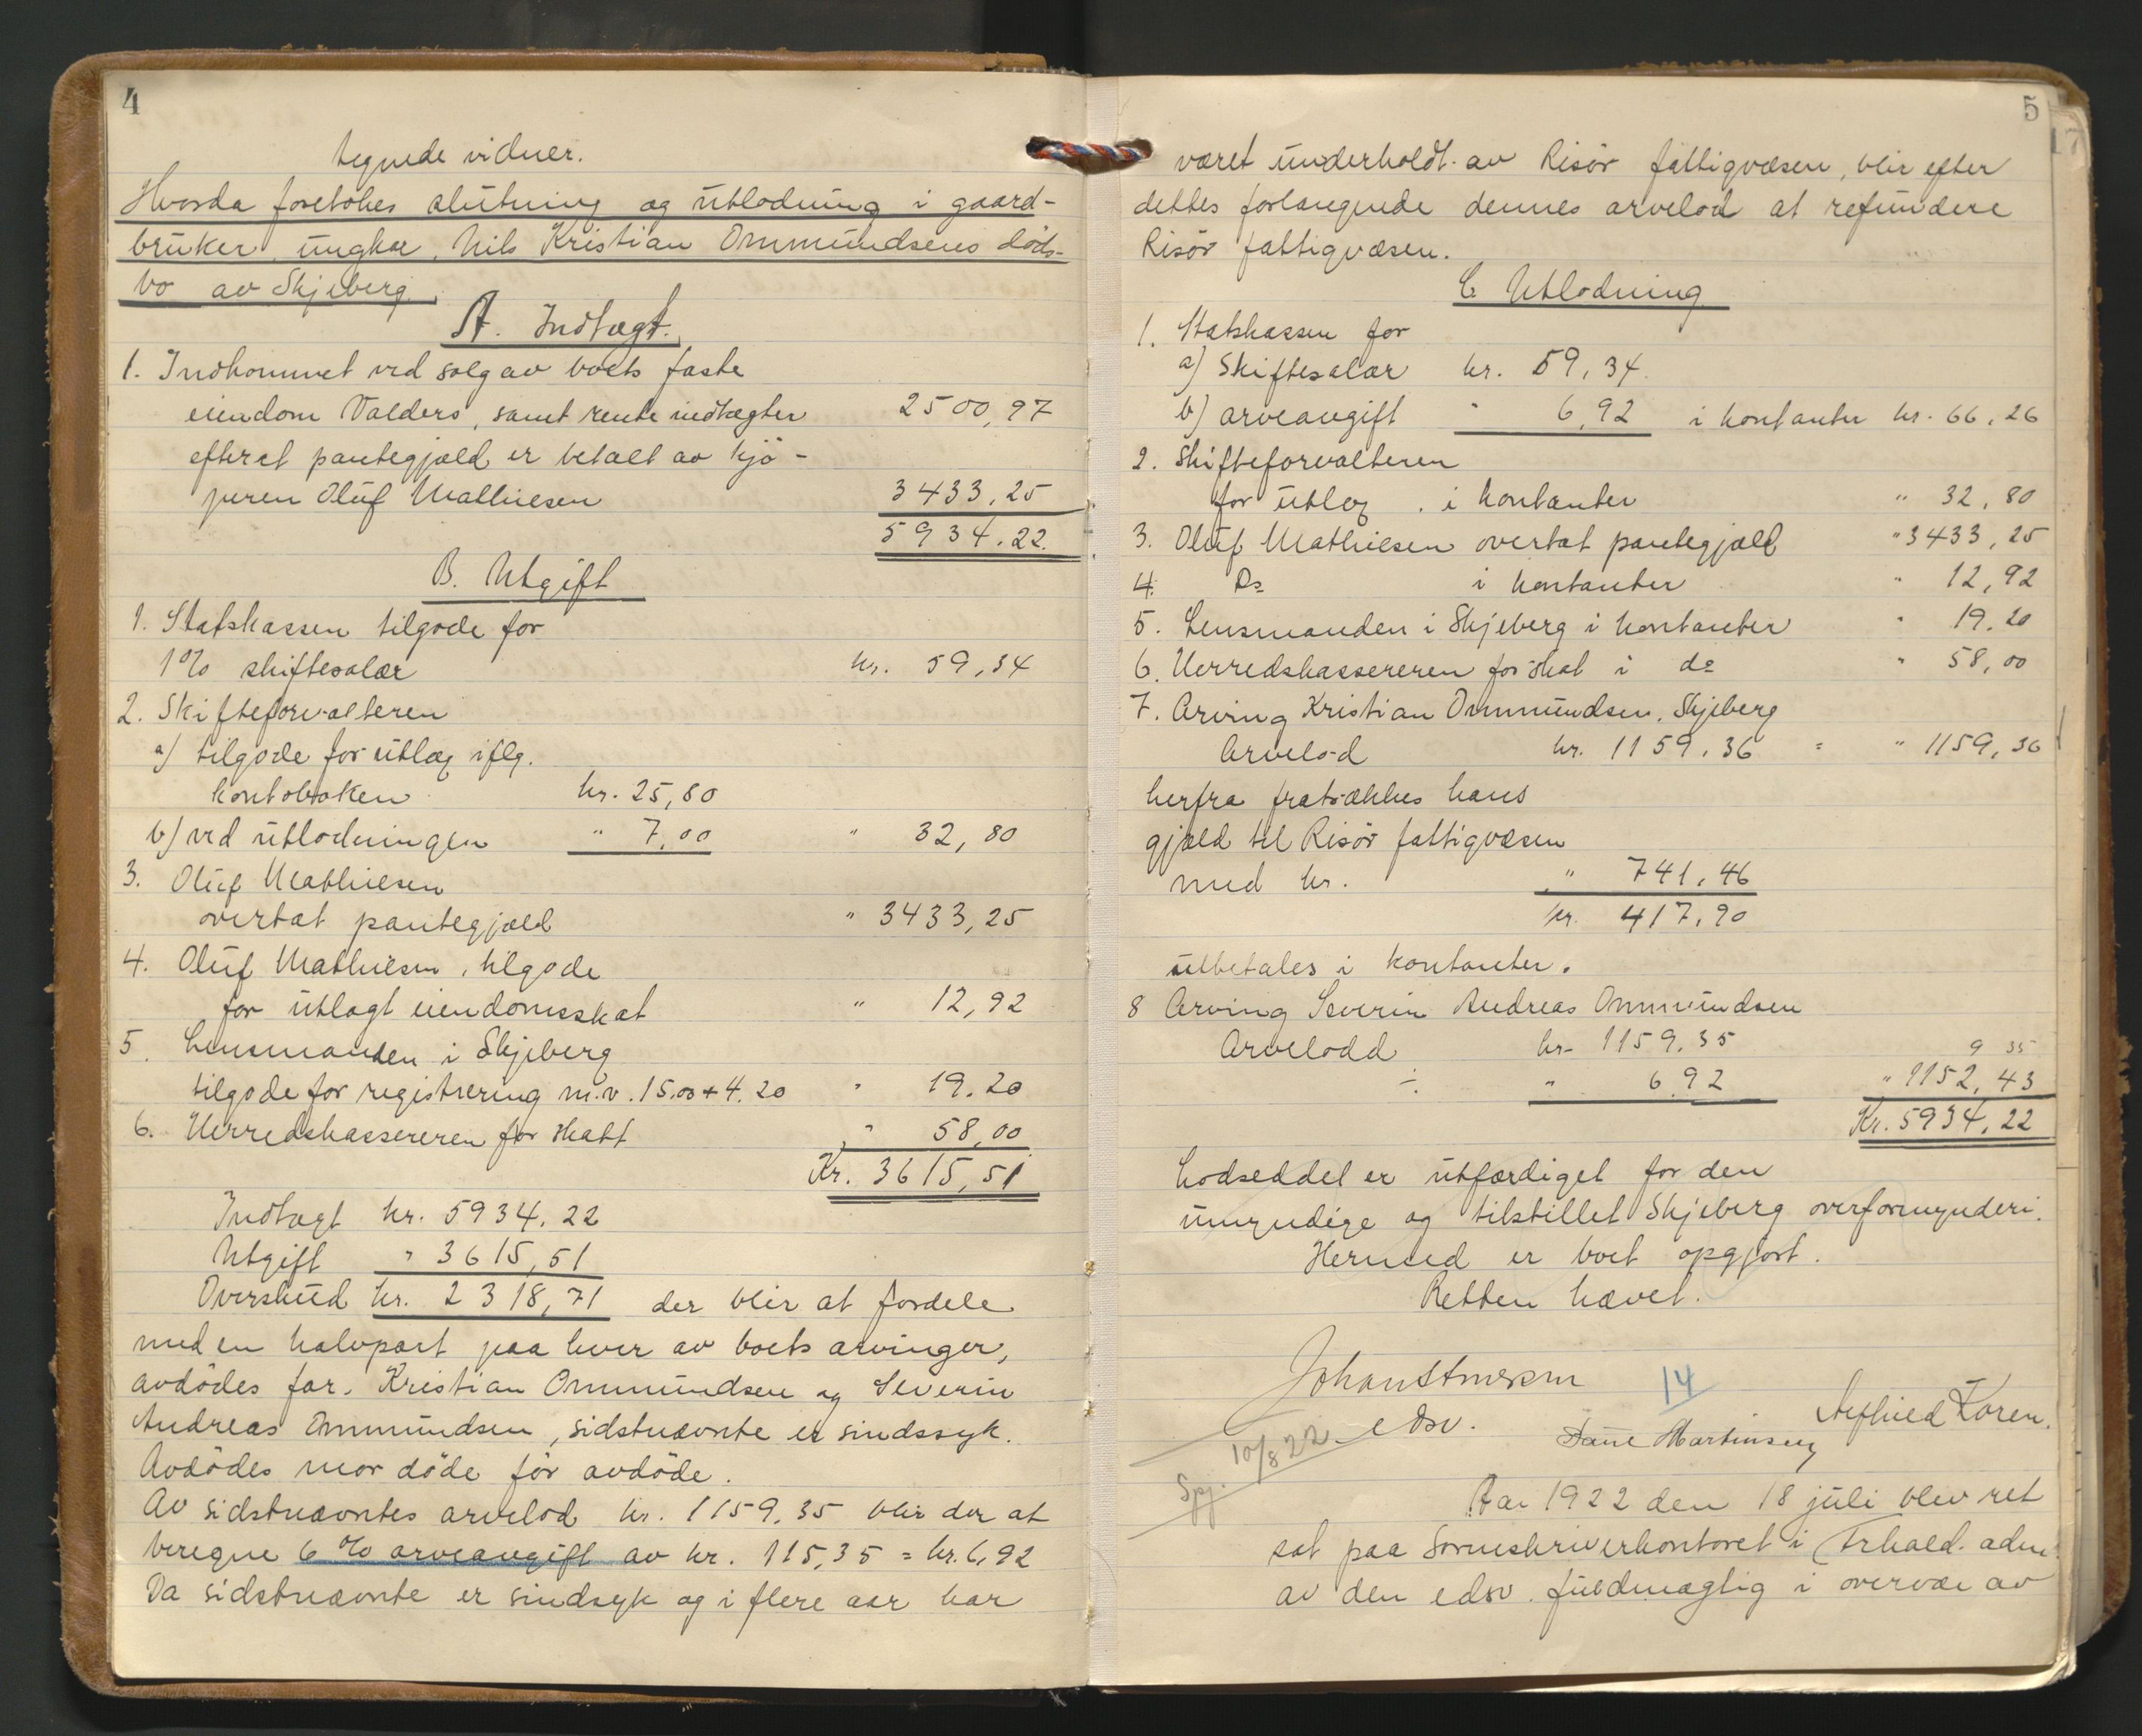 4
tegnede vidner.
Hvorda foretokes slutning og utlodning i gaard-
bruker, ungkar, Nils Kristian Ommundsens döds-
bo av Skjeberg.
A. Indtægt.
1. Indkommet ved salg av boets faste
eiendom Valders, samt rente indtægter 2500,97
efterat pantegjæld er betalt av kjö-
peren Oluf Mathiesen 3433,25
5934.22.
B. Utgift
1. Statskassen tilgode for
1% skiftesalær kr. 59,34
2. Skifteforvalteren
a) tilgode for utlæg iflg.
kontoboken kr. 25,80
b) ved utlodningen " 7,00 " 32,80
3. Oluf Mathiesen
overtat pantegjæld " 3433,25
4. Oluf Mathiesen, tilgode
for utlagt eiendomsskat " 12,92
5. Lensmanden i Skjeberg
tilgode for registrering m.v. 15.00 + 4.20 " 19.20
6. Herredskassereren for skatt " 58,00
Kr. 3615,51
Indtægt kr. 5934.22
Utgift " 3615,51
Overskud kr. 2318,71 der blir at fordele
med en halvpart paa hver av boets arvinger,
avdödes far, Kristian Ommundsen og Severin
Andreas Ommundsen, sidstnævnte er sindssyk.
Avdödes mor döde för avdöde.
Av sidstnævntes arvelod kr. 1159.35 blir der at
beregne 6% arveavgift av kr. 115,35 = kr. 6,92
Da sidstnævnte er sindsyk og i flere aar har
5
17
været underholdt av Risör fattigvæsen, blir efter
dettes forlangende dennes arvelod at refundere
Risör fattigvæsen.
C. Utlodning
1. Statskassen for
a) Skiftesalær kr. 59,34.
b) arveavgift " 6,92 i kontanter kr. 66,26
2. Skifteforvalteren
for utlæg i kontanter " 32,80
3. Oluf Mathiesen overtat pantegjæld " 3433,25
4. Do i kontanter " 12,92
5. Lensmanden i Skjeberg i kontanter " 19.20
6. Herredskassereren for skat i do " 58,00
7. Arving Kristian Ommundsen, Skjeberg
Arvelod kr. 1159.36 = " 1159,36
herfra fratrækkes hans
gjæld til Risör fattigvæsen
med kr. " 741,46
kr. 417,90
utbetales i kontanter.
8 Arving Severin Andreas Ommundsen
Arvelodd kr. 1159.35
9 35
÷ " 6.92 " 1152,43
Kr. 5934,22
Lodseddel er utfærdiget for den
umyndige og tilstillet Skjeberg overformynderi.
Hermed er boet opgjort.
Retten hævet.
14
edsv. Koren.
Martinsen
10/8 22
Spj.
Aar 1922 den 18 juli blev ret
sat paa Sorenskriverkontoret i Frhald. adm.
av den edsv. fuldmægtig i overvær av